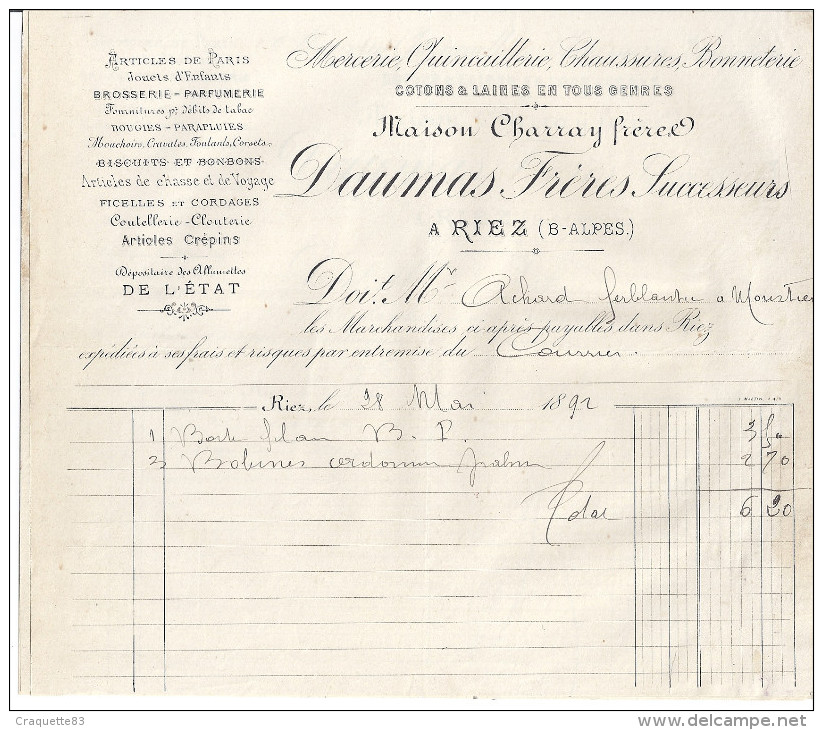 ARTICLES DE PARIS
Jouets d'Enfants
BROSSERIE - PARFUMERIE
Fournitures pr débits de tabac
BOUGIES - PARAPLUIES
Mouchoirs, Cravates, Foulards, Corsets.
BISCUITS ET BONBONS
Articles de chasse et de Voyage
FICELLES ET CORDAGES
Coutellerie - Clouterie
Articles Crépins
Dépositaire des Allumettes
DE L'ÉTAT
Mercerie, Quincaillerie, Chaussures, Bonneterie
COTONS & LAINES EN TOUS GENRES
Maison Charray frères
Daumas Frères Successeurs
A RIEZ (B-ALPES.)
Doit Mr Achard ferblantier a Moustier
les Marchandises ci-après payables dans Riez
expédiées à ses frais et risques par entremise du Courrier.
Riez, le 28 Mai 1892
1 Boite B. P. 3
Bobines 2 70
Total 6 20
Craquette83
http://www.delcampe.net